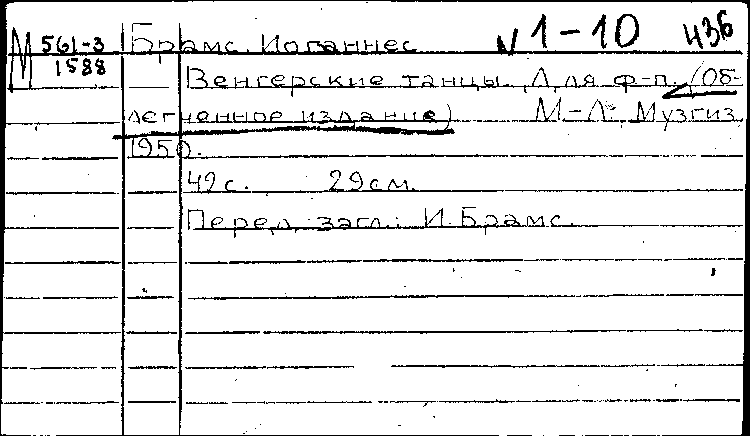 М 561-3 Брамс, Иоганнес N 1-10 436
1588 Венгерские танцы. Для ф-п. (Об-
легченное издание) М-Л, Музгиз,
1950.
42 с. 29 см.
Перед загл.: И. Брамс.